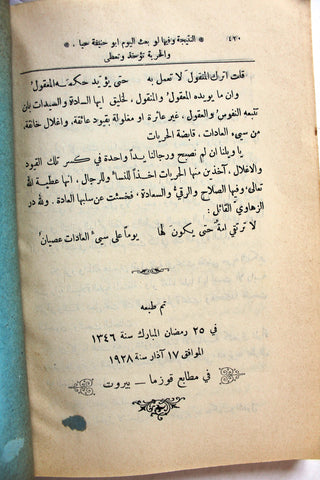 ﴿٤٢٠﴾ * النتيجة وفيها لو بعث اليوم ابو حنيفة حيا *
والحرية تؤخذ وتعطى
قلت اترك المنقول لا تعمل به حتى يؤيد حكمه المعقول
وان ما يويده المعقول والمنقول، لخليق ايها السادة والسيدات بان
تتبعه النفوس والعقول، غير عاثرة او مغلولة بقيود عائقة، واغلال خانقة،
من سيىء العادات، قابضة الحريات
يا ويلنا ان لم نصبح ورجالنا يداً واحدة في كسر تلك القيود
والاغلال، آخذين منها الحريات اخذاً للنساء وللرجال، انها عطية الله
تعالى وفيها الصلاح والرقي والسعادة، فخسئت عن سلبها العادة. ولله در
الزهاوي القائل:
لا ترتقي امة حتى يكون لها يوماً على سيىء العادات عصيان
تم طبعه
في ٢٥ رمضان المبارك سنة ١٣٤٦
الموافق ١٧ آذار سنة ١٩٢٨
في مطابع قوزما — بيروت